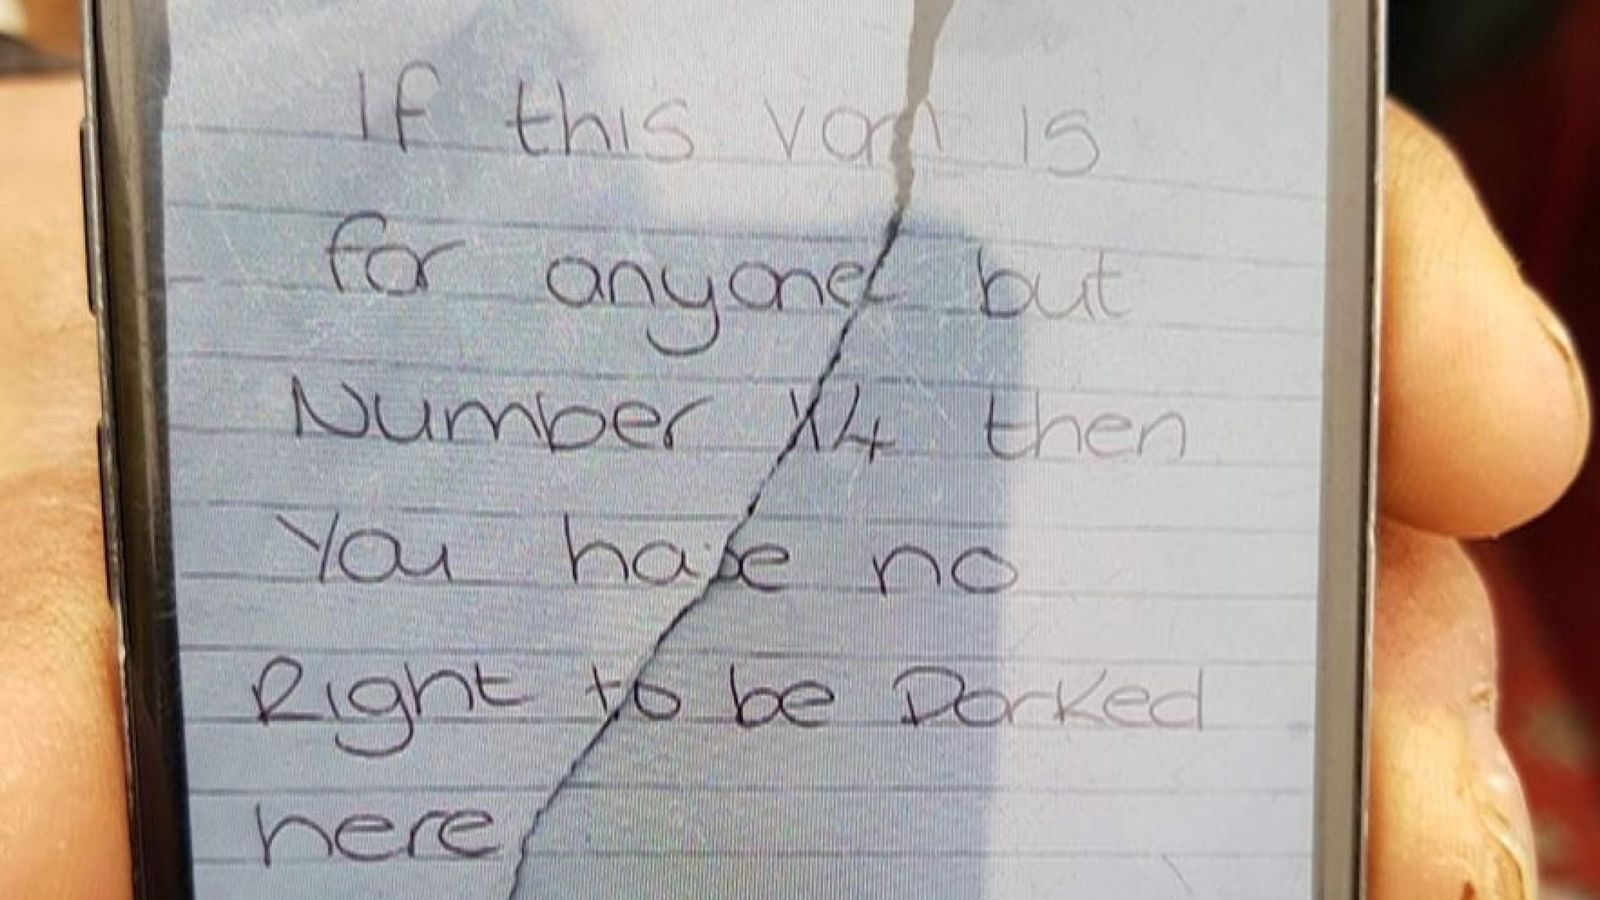 If this van is
for anyone but
Number 14 then
You have no
Right to be Parked
here